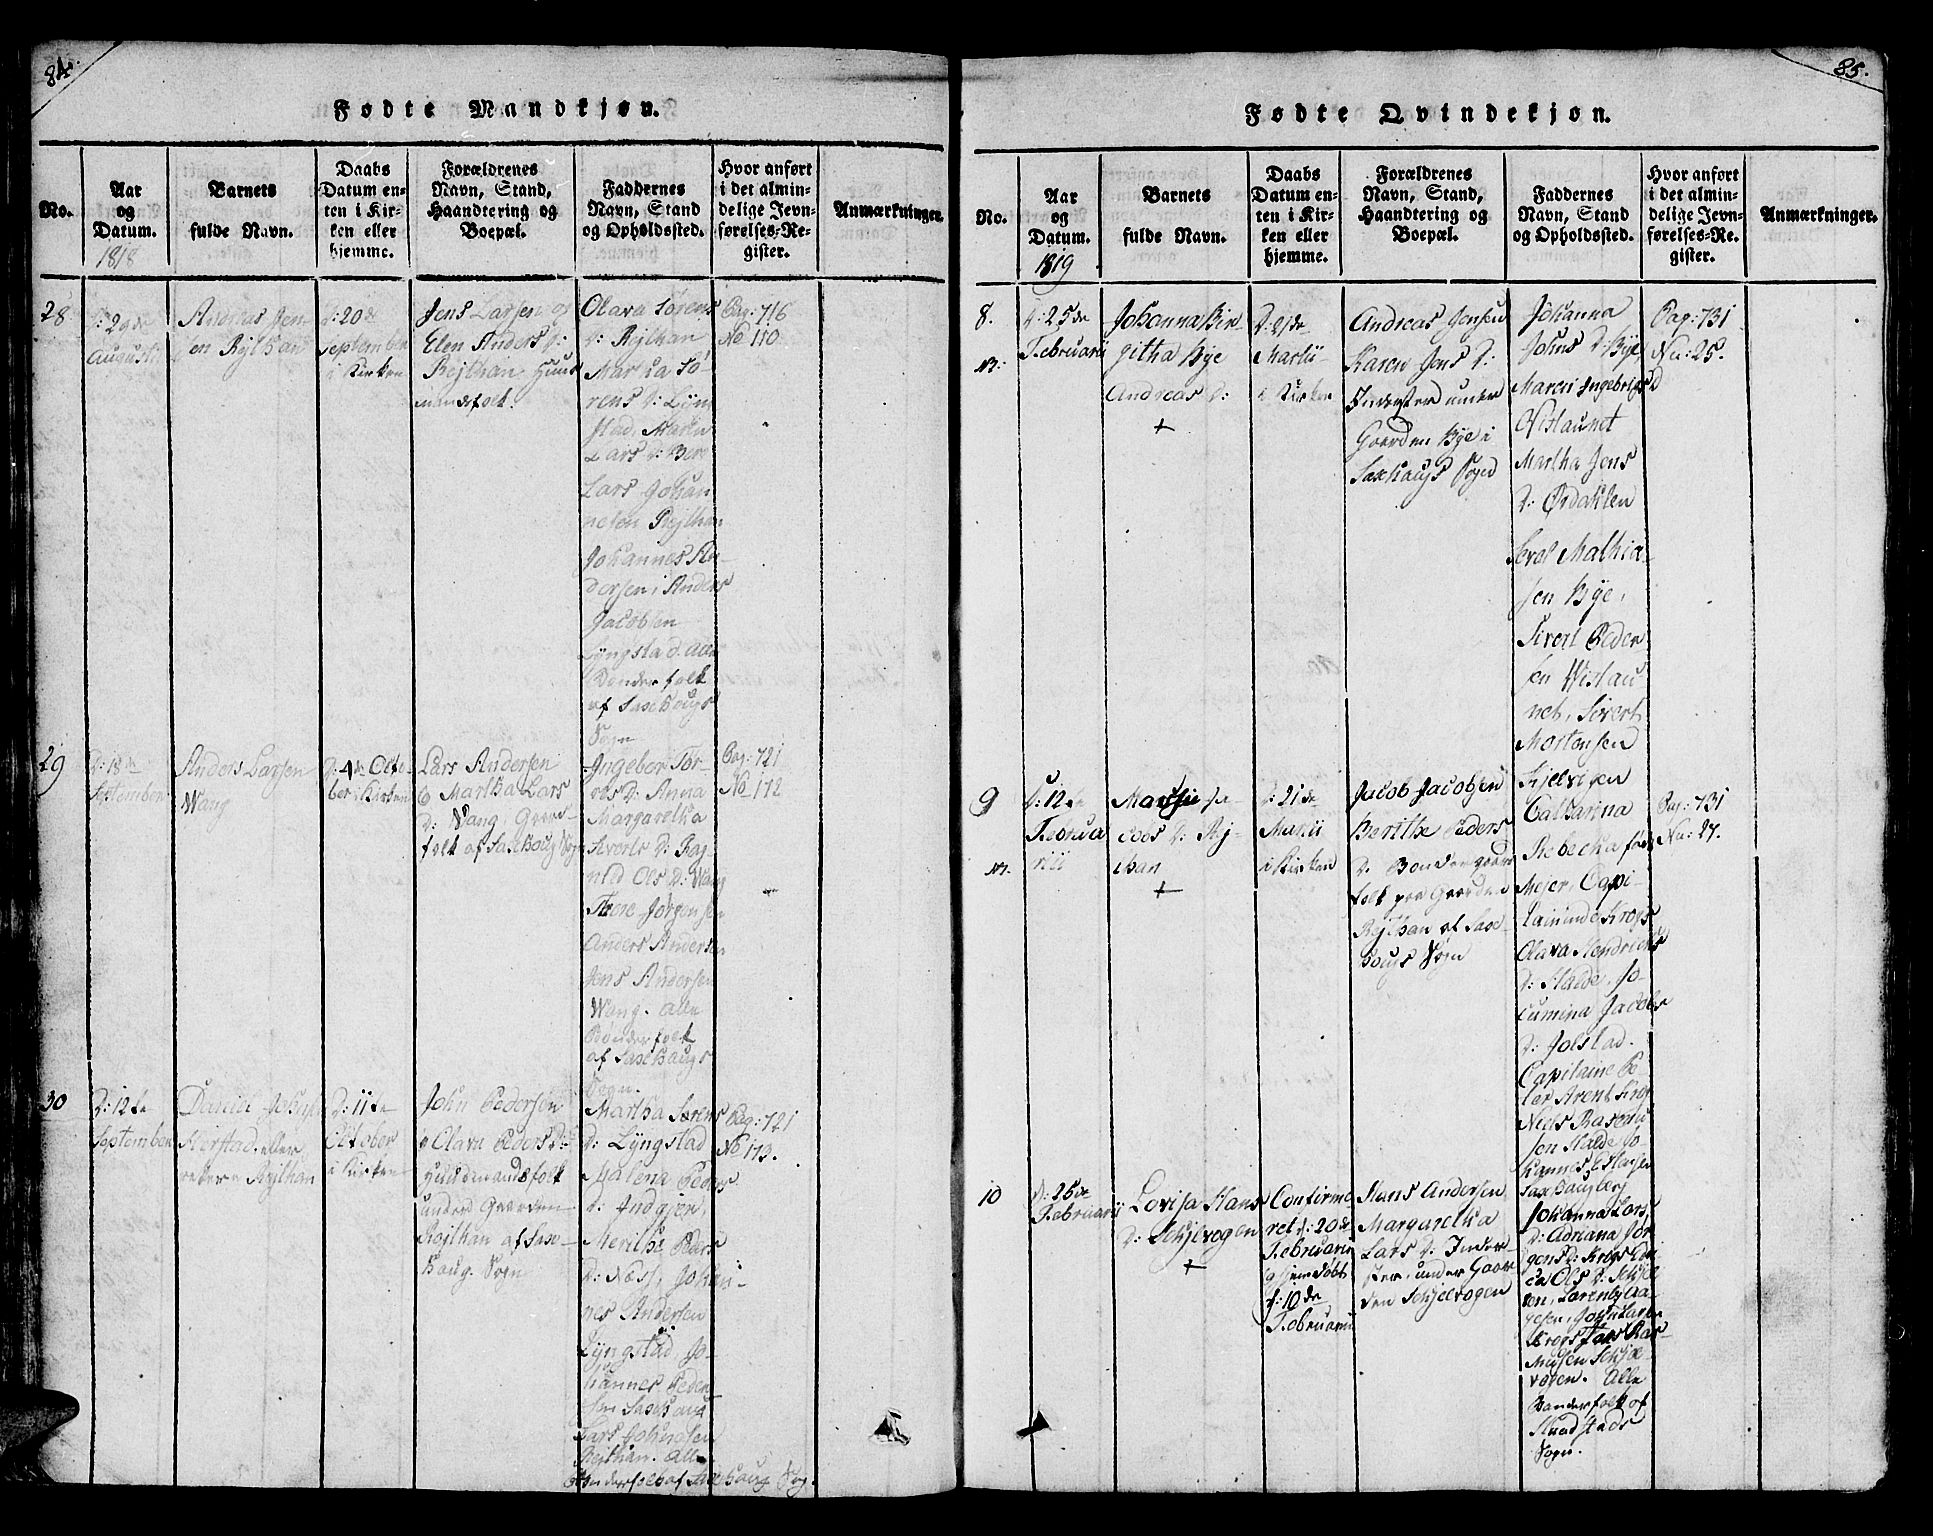 84.
Fødte Mandkjøn.
No.
Aar
og
Datum.
1818
Barnets
fulde Navn.
Daabs
Datum en-
ten i Kir-
ken eller
hjemme.
Forældrenes
Navn, Stand,
Haandtering og
Boepæl.
Faddernes
Navn, Stand
og Opholdssted.
Hvor anført
i det almin-
delige Jevn-
førelses-Re-
gister.
Anmærkninger.
28
D: 29de
Augusti
Andreas Jen-
sen Rejlhan
D: 20de
September
i Kirken
Jens Larsen og
Elen Anders D:
Rejlhan Huus
mandsfolk.
Olava Sørens
D: Rejlhan
Maria Sø-
rens D: Lÿng
stad, Maren
Lars D: Berg
Lars Johan
nesen Rejlhan
Johannes
dersen, Anders
Jacobsen
Lÿngstad. alle
Bønderfolk
af Saxhougs
Sogn
Pag: 716
No 110
29
D: 18de
September
Anders Larsen
Wang
D: 4de Octo
ber i Kirken
Lars Andersen
& Martha Lars
D: Wang, Gaard-
folk af Saxhoug Sogn
Ingebor Tor-
ols D: Anna
Margaretha
Siverts D: Rag
nild Ols D: Wang
Thore Jørgensen
Anders Andersen
Jens Andersen
Wang. alle
Bønderfolk
af Saxhougs
Sogn.
Pag: 721
No 112
30
D: 12te
September
Daniel Johns
Aerstad. eller
rettere Rejlhan
D: 11te
October
i Kirken
John Pedersen
& Olava Peders D:
Huusmandsfolk
under Gaarden
Rejlhan af Saxe-
houg. Sogn
Martha Sørens
D: Lÿngstad
Malena Peders
D: Jndgjer,
Merithe Peders
D: Næss, Johan-
nes Andersen
Lÿngstad, Jo-
hannes Peder
sen Saxhoug
Lars Johnsen
Rejlhan. Alle
Bønderfolk af Saxhoug Sog.
Pag: 721
No 113.
85.
Fødte Qvindekjøn.
No.
Aar
og
Datum.
1819
Barnets
fulde Navn.
Daabs
Datum en-
ten i Kir-
ken eller
hjemme.
Forældrenes
Navn, Stand,
Haandtering og
Boepæl.
Faddernes
Navn, Stand
og Opholdssted.
Hvor anført
i det almin-
delige Jevn-
førelses-Re-
gister.
Anmærkninger.
8.
D: 25de
Februarii
Johanna Bir-
githa Bÿe
Andreas D:
+
D: 21de
Martii
i Kirken
Andreas Jensen
Karen Jens D:
Inderster under
Gaarden Bÿe i
Saxhaugs Sogn
Johanna
Johns D: Bÿe
Maren Ingebrigs D
Vislaunet
Martha Jens
D: Ørdahlen
Mathia-
sen Bÿe,
Sivert Peder
sen Wislau
net, Sivert
Mortensen
Skjelvogen
Pag: 731
No: 25.
9
D: 12te
Februa
rii
Ja-
cobs D: Rej-
lhan
+
D: 21de
Martii
i Kirken
Jacob Jacobsen
Berithe Peders
D: Bonder gaard
folk paa Gaarden
Rejlhan af Saxe-
hougs Sogn
Catharina
Rebecka fød
Mejer, Capi-
tainинde Krogs
Olava Hendrichs
D: Halde, Jo-
cumina Jacobs
D: Jolstad.
Capitaine Pe
ter Arent Krog
Niels Rasmu
sen Halde Jo
hannes Estensen
Saxhaugberg
Pag: 731
No: 27.
10
D: 26de
Februarii
Lovisa Hans
D: Schjevogen
+
Confirme
ret D: 20de
Februarii
hjemdøbt
d: 10de
Februarii
Hans Andersen
Margaretha
Lars D: Inder
ster, under Gaar
den Schjelvogen
Johanna Lars
D: Adriana Jør
gens D: Krogs
Ols D: Schjel
vogen, Lorents Aa-
gesen, John Lars
Krogs, Lars Ras
musen Schje-
vogen. Alle
Bønderfolk af
Stuadstads
Sogn.